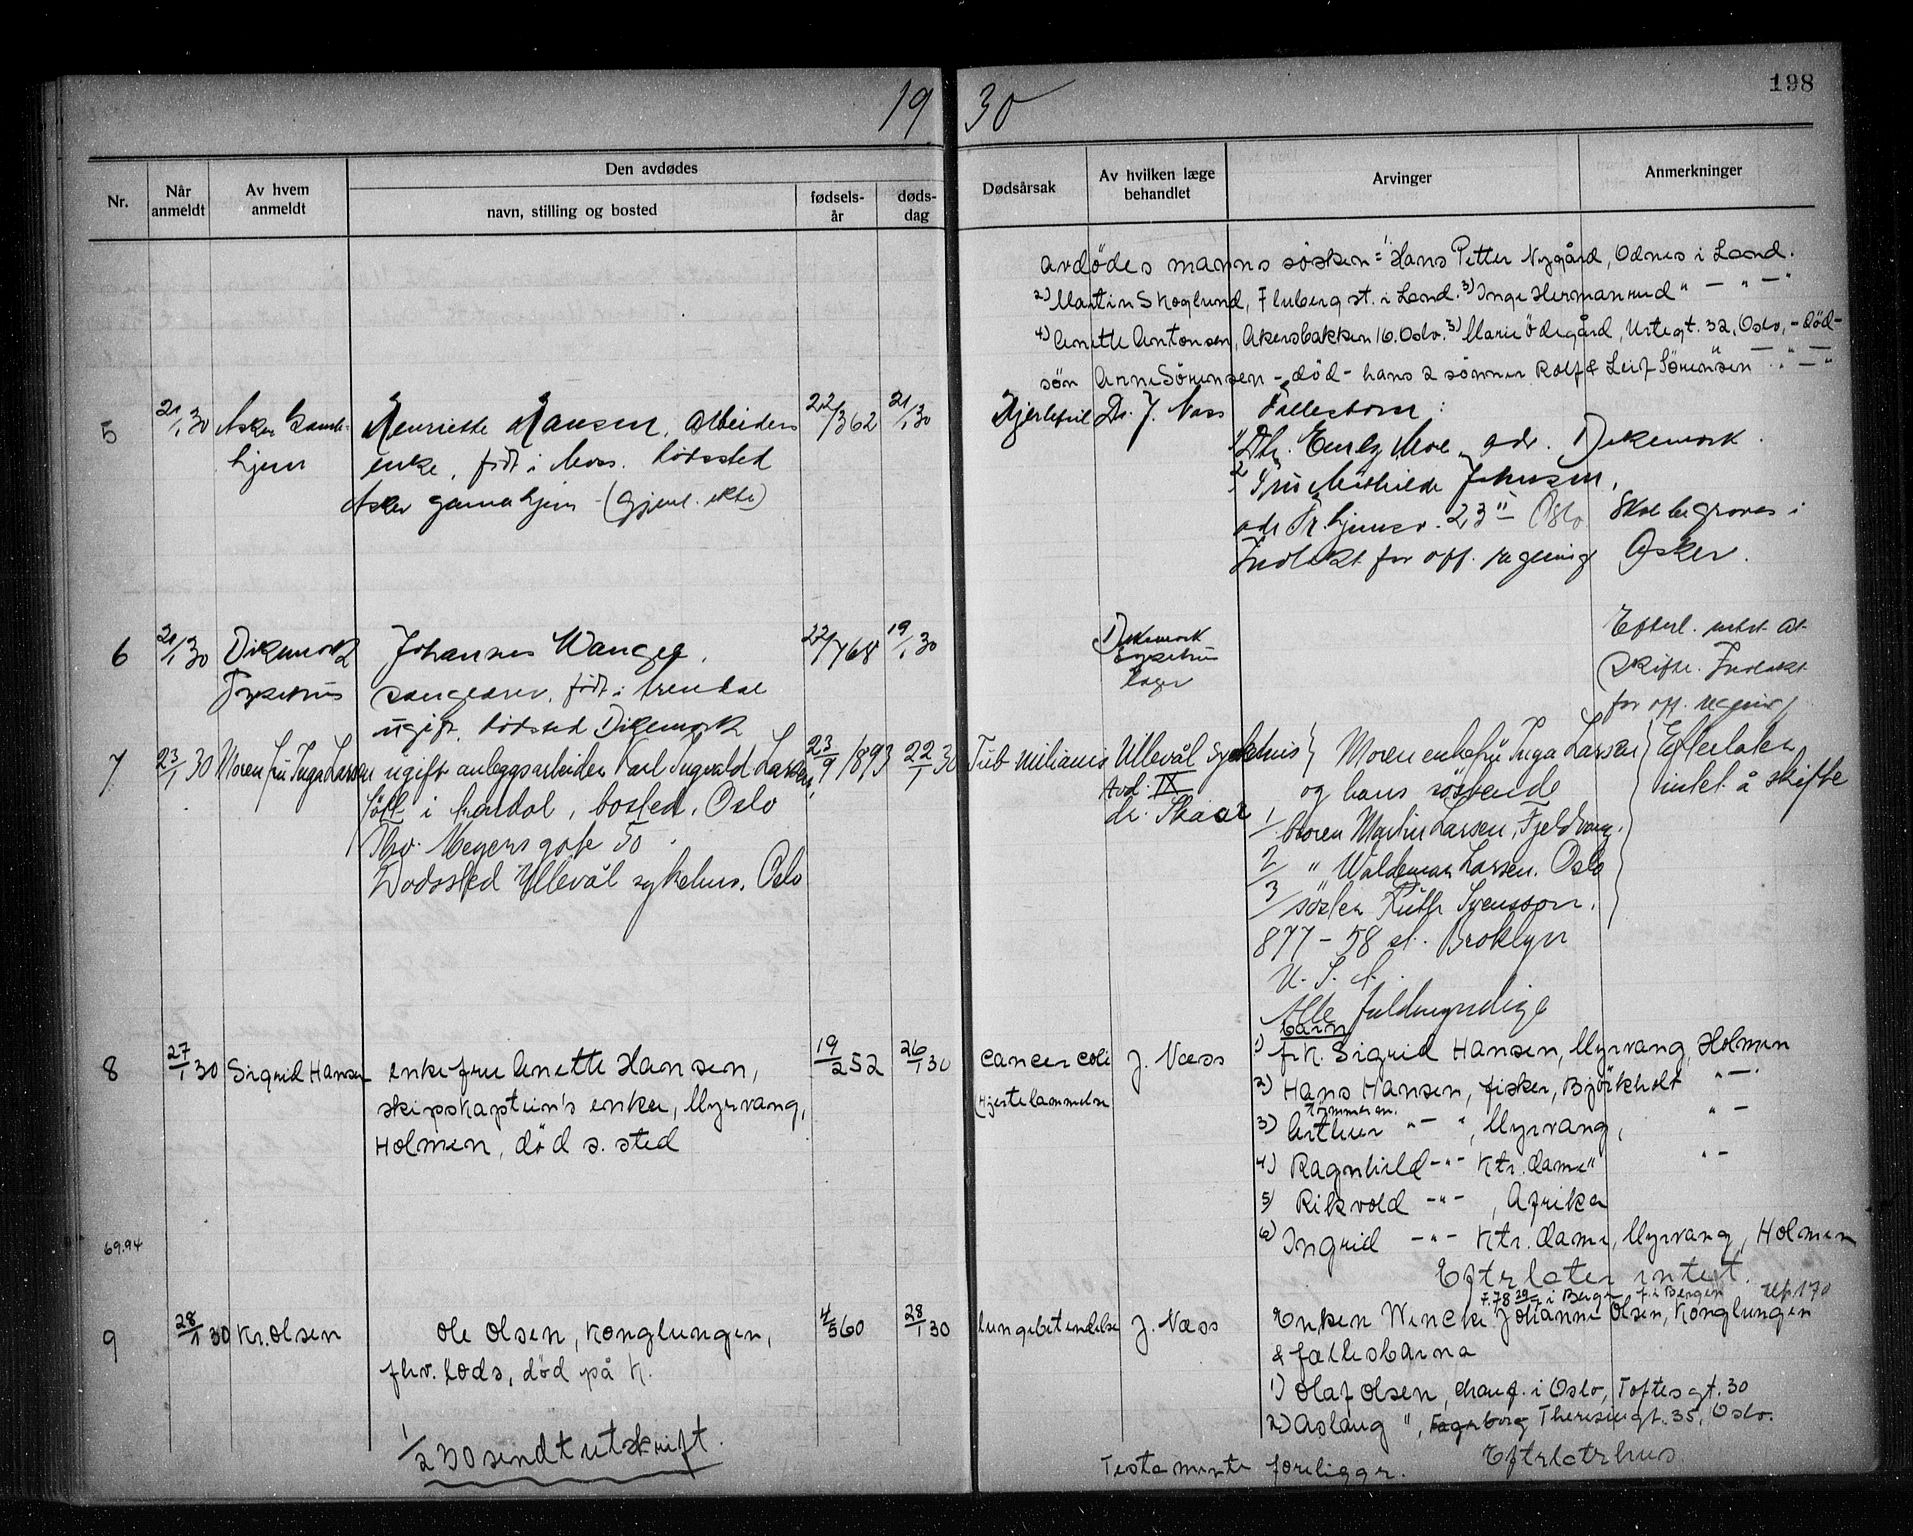 19 30
198
Nr.
Når anmeldt
Av hvem anmeldt
Den avdødes
navn, stilling og bosted
fødsels-år
døds-dag
Dødsårsak
Av hvilken læge behandlet
Arvinger
Anmerkninger
avdødes manns søsken = 1) Hans Petter Nygård, Odnes i Land.
2) Martin Skoglund, Fluberg st. i Land. 3) Inge Hermanrud " — " — "
4) Anette Antonsen, Akersbakken 16. Oslo. 3) Marie Ødegård, Urtegt. 32, Oslo, - død -
søn Anne Sørensen - død - hans 2 sønner Rolf & Leif Sörensen
5
21/1 30
Asker Gamle-
hjem
Henriette Hansen, arbeiders
enke, født i Moss. Dødssted
Asker gamlehjem - (Gjenl. ekte)
22/3 62
21/1 30
Hjertefeil
Dr. J. Næss
Fellesbarn:
1 Dtr. Emily Moe, adr. Dikemark.
2 Fru Mathilde Johnsen,
23 II Oslo
Indtekt for off.
Skal begraves i
Asker.
6
21/1 30
Dikemark
Sykehus
Johannes Wangen,
født i
ugift, dødsted Dikemark
22/7 68
19/1 30
Dikemark
Sykehus
læger
Efterl. intet at
skifte. Indtekt
for off.
7
23/1 30
Moren fru Inga Larsen
ugift anleggsarbeider Karl Ingvald Larsen,
født i Hurdal, bosted, Oslo
Thv. Meyers gate 50.
Dødssted Ullevål sykehus. Oslo
23/9 1893
22/1 30
Tub miliaris
Ullevål sykehus
Avd. IX
dr. Skaar
Moren enkefru Inga Larsen
og hans søskende
1/ broren Martin Larsen, Fjeldvang.
2/ " Waldemar Larsen. Oslo
3/ søster Ruth Svensson.
877 - 58 st. Broklyn
U. S. A.
Alle fuldmyndige
Efterlater
intet å skifte
8
27/1 30
Sigrid Hansen
enkefru Anette Hansen,
skipskaptein's enke, Myrvang,
Holmen, død s. sted
19/2 52
26/1 30
cancer coli
(Hjertelammelse
J. Næss
barn
1) frk. Sigrid Hansen, Myrvang, Holmen
2) Hans Hansen, fisker, Bjørkholt " — "
3) Arthur " — " tømmerm., Myrvang, " —
4) Ragnhild - " - Ktr. dame " " —
5) Rikvold - " - , Afrika
6) Ingrid - " - Ktr. dame, Myrvang, Holmen
Efterlater intet.
69.94
9
28/1 30
Kr. Olsen
Ole Olsen, Konglungen,
fhv. lods, død på K.
4/5 60
28/1 30
lungebetendelse
J. Næss
F. 78 29/ i Bergen f. i Bergen
Uf. 170
Enken Wencke Johanne Olsen, Konglungen
& fellesbarna
1) Olaf Olsen, chauf. i Oslo, Toftesgt. 30
2) Aslaug ", Fagerborg Theresiegt. 35, Oslo.
1/2 30 sendt utskrift.
Testamente foreligger.
Efterlater hus.